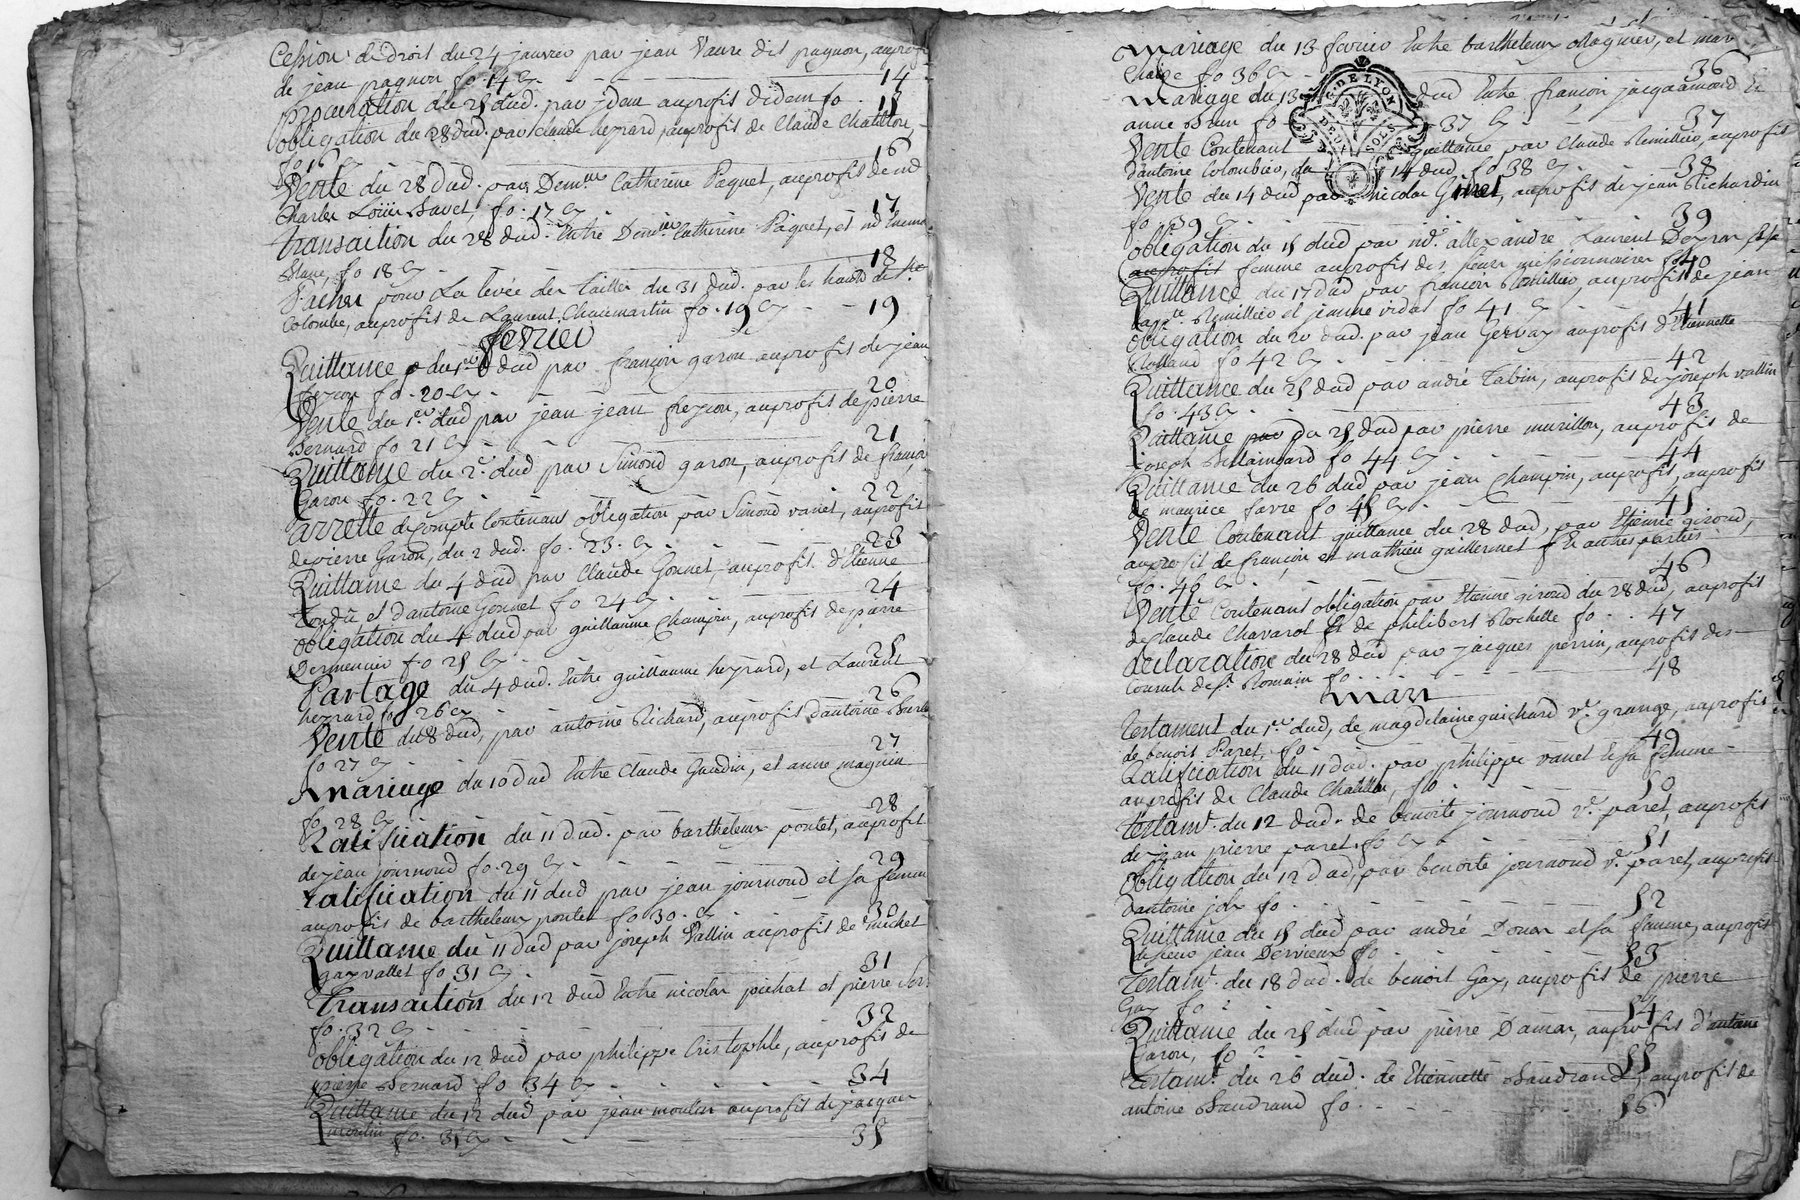 Cession de droit du 24 janvier par jean Vaure dit pagnon, auprofit
de jean pagnon fo. 14 14
procuration du 25 dud. par idem auprofit didem fo. 15
obligation du 28 dud. par Claude heyrard, auprofit de Claude Chatillon,
fo 16 16
Vente du 28 dud. par Demlle Catherine Paquet, auprofit de
Charles Loüis Savet, fo. 17 17
transaction du 28 dud. Entre Demlle Catherine Paquet, et
Blanc, fo 18 18
pour La levée des tailles du 31 dud. par les hants de Ste
Colombe, auprofit de Laurent Chaumartin fo. 19 19
fevrier
Quittance du 1er dud par françois garon auprofit de jean
freycon fo. 20 20
Vente du 1er dud par jean jean freycon, auprofit de pierre
Bernard fo 21 21
Quittance du 2e dud par Simond garon, auprofit de françois
Garon fo. 22 22
arrette de compte Contenant obligation par Simond vanet, auprofit
de pierre Garon, du 2 dud. fo. 23 23
Quittance du 4 dud par Claude Gonnet, auprofit d'Etienne
et d'antoine Gonnet fo 24 24
obligation du 4 dud par guillaume Champin, auprofit de pierre
Dermencier fo 25 25
Partage du 4 dud. Entre guillaume heyrard, et Laurent
heyrard fo 26 26
Vente du 8 dud, par antoine Richard, auprofit d'antoine
fo 27 27
Mariage du 10 dud Entre Claude Gaudin, et anne magnin
fo 28 28
Ratification du 11 dud. par barthelemy pontet, auprofit
de jean journoud fo. 29 29
ratification du 11 dud par jean journoud et sa femme
auprofit de barthelemy pontet fo 30 30
Quittance du 11 dud par joseph Vallin auprofit de michel
gayvallet fo 31 31
Transaction du 12 dud Entre nicolas jouchat et pierre
fo. 32 32
obligation du 12 dud par philippe Cristophle, auprofit de
pierre Bernard fo 34 34
Quittance du 12 dud par jean moulin auprofit de jacques
moulin fo. 35 35
Mariage du 13 fevrier Entre barthelemy Magnier, et mar
fo 36 36
Mariage du 13 dud Entre françois jacquemond Et
anne fo 37 37
G. DE LYON
DEUX SOLS
Vente Contenant quittance par Claude Remillieu, auprofit
d'antoine Colombier, du 14 dud. fo 38 38
Vente du 14 dud par nicolas Ginet, auprofit de jean Richardin
fo. 39 39
obligation du 15 dud par allexandre Laurent Deyran
auprofit femme auprofit des sieurs missionnaires fo 40
Quittance du 17 dud par françois Remillieu, auprofit de jean
Remillieu et jeanne vidal fo 41 41
obligation du 20 dud. par jean Gervay auprofit d'Etiennette
Rolland fo 42 42
Quittance du 25 dud par andré Tabin, auprofit de joseph vallin
fo. 43 43
Quittance par du 25 dud par pierre murillon, auprofit de
joseph fo 44 44
Quittance du 26 dud par jean Champin, auprofit, auprofit
de maurice favre fo 45 45
Vente Contenant quittance du 28 dud, par Etienne giroud,
auprofit de françois et mathieu guillermet Et autres parties
fo. 46 46
Vente Contenant obligation par Etienne giroud du 28 dud, auprofit
de Claude Chavarot Et de philibert Rochette fo 47
declaration du 28 dud par jacques perrin, auprofit des
Consuls de St. Romain fo 48
Mars
Testament du 1er dud, de magdelaine guichard ve. grange, auprofit
de benoit Paret, fo 49
Ratification du 11 dud. par philippe vanet Et sa femme
auprofit de Claude Chatillon, fo 50
testamt. du 12 dud. de benoite journoud ve. paret, auprofit
de jean pierre paret fo 51
obligation du 12 dud, par benoite journoud ve. paret, auprofit
d'antoine fo 52
Quittance du 15 dud par andré Donon et sa femme, auprofit
de sieur jean Dervieux fo 53
Testamt. du 18 dud. de benoit Gay, auprofit de pierre
Gay fo 54
Quittance du 25 dud par pierre Damon, auprofit d'antoine
Garon, fo 55
Testamt. du 26 dud. de Etiennette Baudrand, auprofit de
antoine Baudrand fo. 56